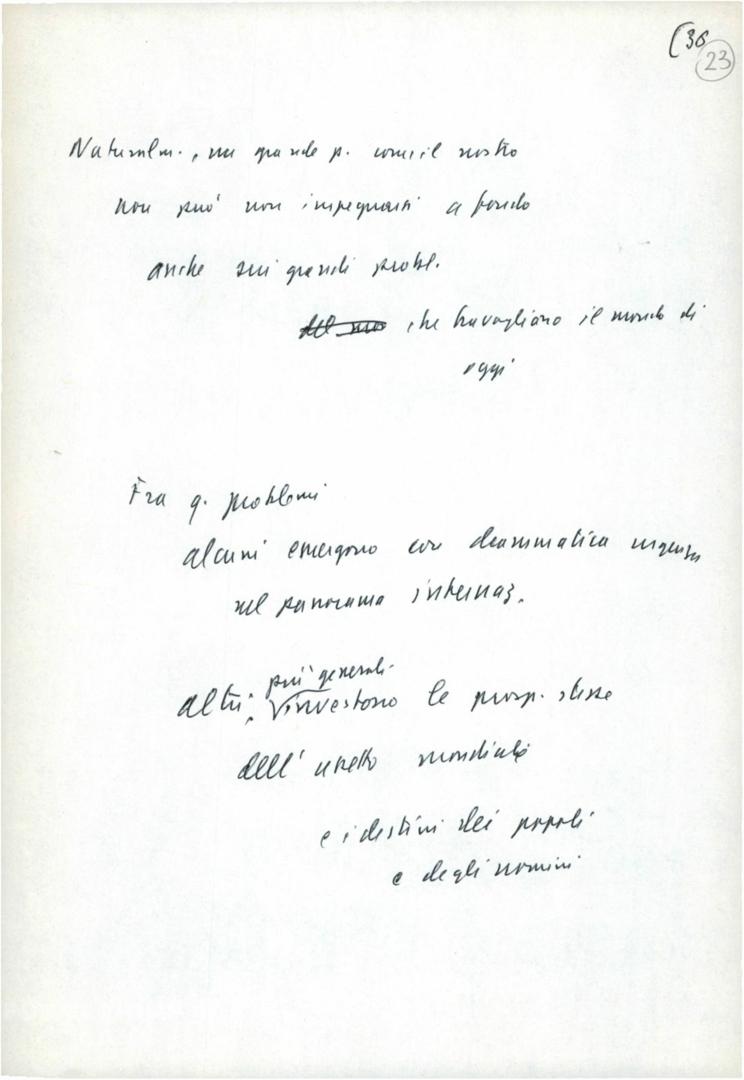 (36
23
Naturalm., un grande p. come il nostro
non può non impegnarsi a fondo
anche sui grandi probl.
del mo che travagliano il mondo di
oggi
Fra q. problemi
alcuni emergono con drammatica urgenza
nel panorama internaz.
più generali
altri, investono le prosp. stesse
dell'assetto mondiale
e i destini dei popoli
e degli uomini